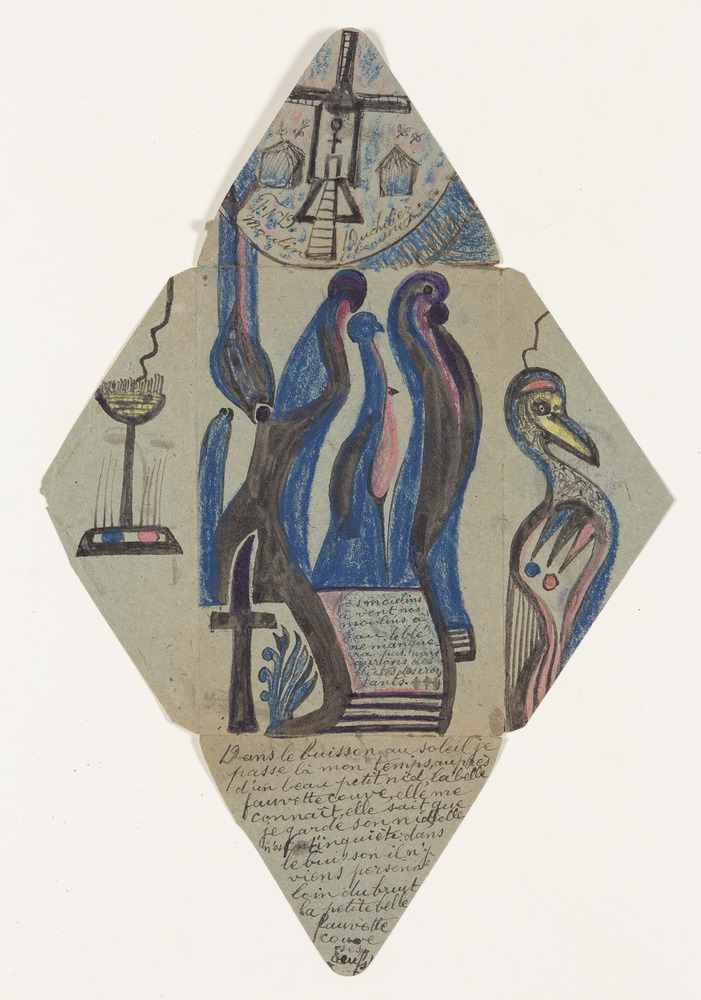 Moulin
Duchitiez
és moulins
à vent nos
moulins à
Eau. le blé
ne manque
ra pas. nous
tants.
Dans le buisson au soleil je
passe là mon temps, auprès
d'un beau petit nid, la belle
fauvette couve, elle me
connaît, elle sait que
je garde son nid, elle
n'est inquiète, dans
le buisson il n'y
viens personne
loin du bruyt
la petite belle
fauvette
couve
ses
Œufs